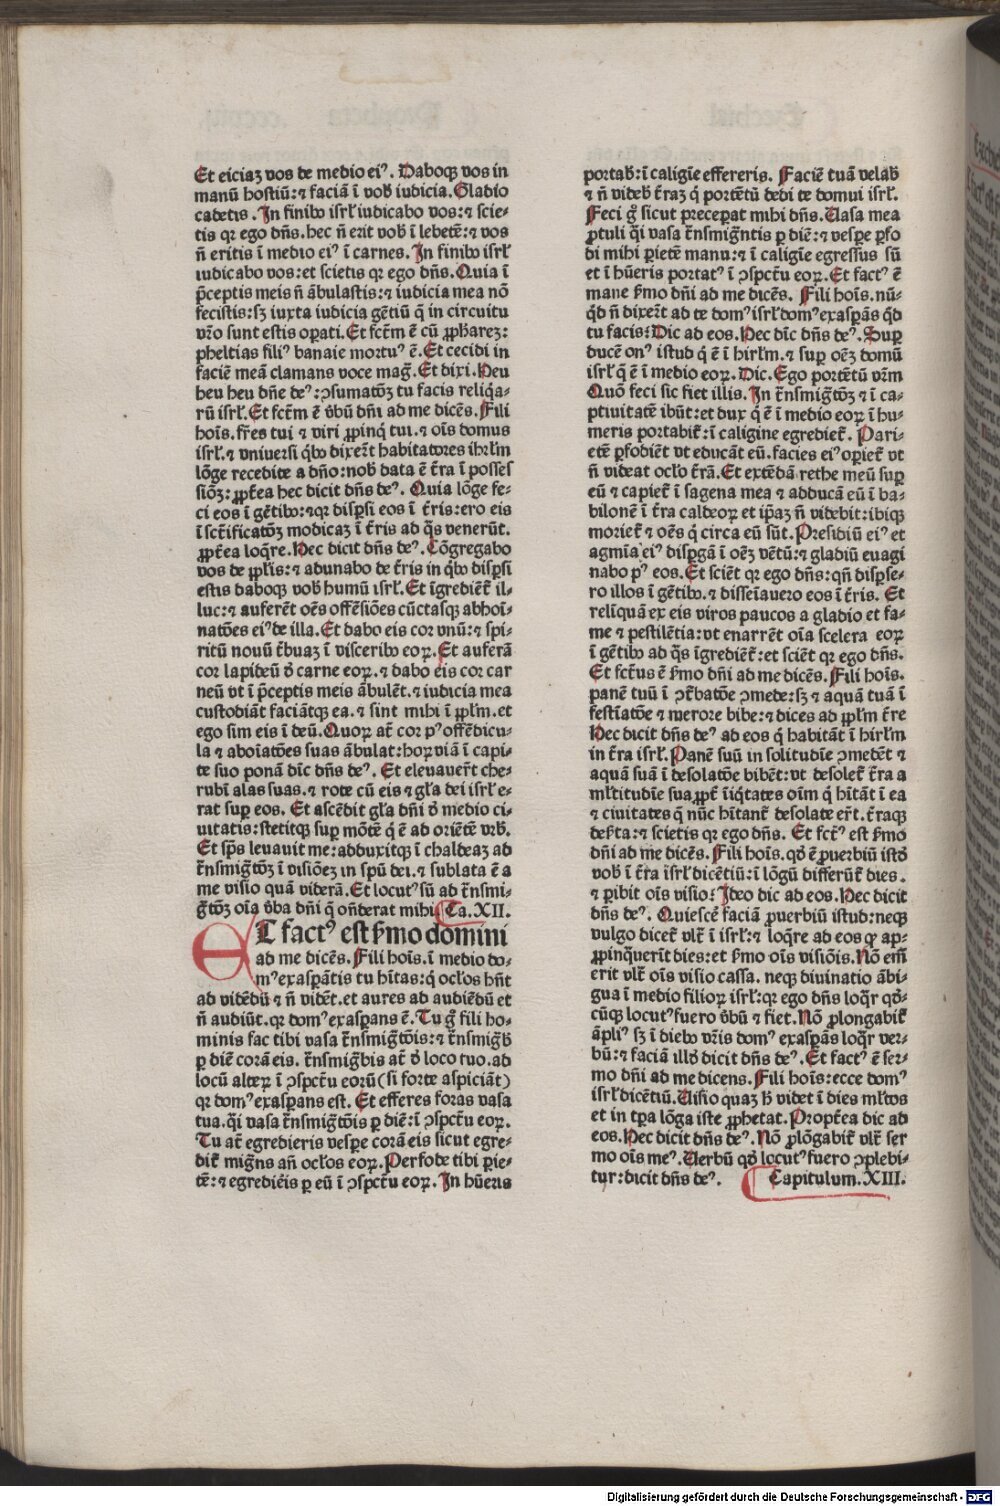 Et eiciaꝫ vos de medio eiꝰ. Daboqꝫ vos in
manū hostiū: ⁊ faciā ĩ vob̄ iudicia. Gladio
cadetis. In finibꝰ isrł iudicabo vos: ⁊ scie-
tis qꝛ ego dñs. hec ñ erit vob̄ ĩ lebetē: ⁊ vos
ñ eritis ĩ medio eiꝰ ĩ carnes. In finibꝰ isrł
iudicabo vos: et scietis qꝛ ego dñs. Quia ĩ
p̄ceptis meis ñ ābulastis: ⁊ iudicia mea nō
fecistis: sꝫ iuxta iudicia gētiū q̄ in circuitu
vr̄o sunt estis oꝑati. Et fctm̄ ē cū ꝓpharez:
pheltias filiꝰ banaie mortuꝰ ē. Et cecidi in
faciē meā clamans voce maḡ. Et dixi. Heu
heu heu dñe deꝰ: ꝯsumatōꝫ tu facis reliq̄a-
rū isrł. Et fctm̄ ē v̄bū dñi ad me dicēs. Fili
hoīs. fr̄es tui ⁊ viri ꝓpinq̄ tui. ⁊ oīs domus
isrł. ⁊ vniuersi q̄bꝰ dixer̄t habitatores ihrłm
lōge recedite a dño: nob̄ data ē t̄ra ĩ posses
siōꝫ: ꝓpt̄ea hec dicit dñs deꝰ. Quia lōge fe-
ci eos ĩ gētibꝰ: ⁊ qꝛ disꝑsi eos ĩ t̄ris: ero eis
ĩ sct̄ificatōꝫ modicaꝫ ĩ t̄ris ad q̄s venerūt.
ꝓpt̄ea loq̄re. Hec dicit dñs deꝰ. Cōgregabo
vos de ꝓplis: ⁊ adunabo de t̄ris in q̄bꝰ disꝑsi
estis daboqꝫ vob̄ humū isrł. Et īgrediēt̄ il-
luc: ⁊ auferēt oēs offēsiōes cūctasqꝫ abhoī-
natōes eiꝰ de illa. Et dabo eis cor vnū: ⁊ spi-
ritū nouū t̄buaꝫ ĩ visceribꝰ eoꝝ. Et auferā
cor lapideū d̄ carne eoꝝ. ⁊ dabo eis cor car
neū vt ĩ p̄ceptis meis ābulēt. ⁊ iudicia mea
custodiāt faciātqꝫ ea. ⁊ sint mihi ĩ ꝓplm̄. et
ego sim eis ĩ deū. Quoꝝ at̄ cor pꝰ offēdicu-
la ⁊ aboīatōes suas ābulat: hoꝝ viā ĩ capi-
te suo ponā dīc dñs deꝰ. Et eleuauer̄t che-
rubī alas suas. ⁊ rote cū eis ⁊ gła dei isrł e-
rat suꝑ eos. Et ascēdit gła dñi d̄ medio ci-
uitatis: stetitqꝫ suꝑ mōtē q̄ ē ad oriētē vrb̄.
Et sp̄s leuauit me: adduxitqꝫ ĩ chaldeaꝫ ad
t̄nsmiḡtōꝫ ĩ visiōeꝫ in spū dei. ⁊ sublata ē a
me visio quā viderā. Et locutꝰ sū ad t̄nsmi-
ḡtōꝫ oīa v̄ba dñi q̄ oñderat mihi. Ca. XII.
ET factꝰ est ẜmo domini
ad me dicēs. Fili hoīs. ĩ medio do-
mꝰ exasꝑātis tu hītas: q̄ oclos hñt
ad vidēdū ⁊ ñ vidēt. et aures ad audiēdū et
ñ audiūt. qꝛ domꝰ exasꝑans ē. Tu g̊ fili ho-
minis fac tibi vasa t̄nsmiḡtōis: ⁊ t̄nsmiḡb̄
ꝑ diē corā eis. t̄nsmiḡbis at̄ d̄ loco tuo. ad
locū alteꝝ ĩ ꝯspctū eorū (si forte aspiciāt)
qꝛ domꝰ exasꝑans est. Et efferes foras vasa
tua. q̄i vasa t̄nsmiḡtōis ꝑ diē: ĩ ꝯspctū eoꝝ.
Tu at̄ egredieris vesꝑe corā eis sicut egre-
dit̄ miḡns añ oclos eoꝝ. Perfode tibi ꝑie-
tē: ⁊ egrediēis ꝑ eū ĩ ꝯspctū eoꝝ. In hūeris
portab̄: ĩ caligīe effereris. Faciē tuā velab̄
⁊ ñ videb̄ t̄raꝫ q̄ portētū dedi te domui isrł.
Feci g̊ sicut preceꝑat mihi dñs. Vasa mea
ꝓtuli q̄i vasa t̄nsmiḡntis ꝑ diē: ⁊ vesꝑe ꝑfo
di mihi ꝑietē manu: ⁊ ĩ caligīe egressus sū
et ĩ hūeris portatꝰ ĩ ꝯspctū eoꝝ. Et factꝰ ē
mane ẜmo dñi ad me dicēs. Fili hoīs. nū-
qd̄ ñ dixer̄t ad te domꝰ isrł domꝰ exasꝑās qd̄
tu facis: Dic ad eos. Hec dīc dñs deꝰ. Suꝑ
ducē onꝰ istud q̄ ē ĩ hirłm. ⁊ suꝑ oēꝫ domū
isrł q̄ ē ĩ medio eoꝝ. Dic. Ego portētū vr̄m
Quō feci sic fiet illis. In t̄nsmiḡtōꝫ ⁊ ĩ ca-
ptiuitatē ibūt: et dux q̄ ē ĩ medio eoꝝ ĩ hu-
meris portabit̄: ĩ caligine egrediet̄. Pari-
etē ꝑfodiēt vt educāt eū. facies eiꝰ oꝑiet̄ vt
ñ videat oclo t̄rā. Et extēdā rethe meū suꝑ
eū ⁊ capiet̄ ĩ sagena mea ⁊ adducā eū ĩ ba-
bilonē ĩ t̄ra caldeoꝝ et ip̄aꝫ ñ videbit: ibiqꝫ
moriet̄ ⁊ oēs q̄ circa eū sūt. Presidiū eiꝰ et
agmīa eiꝰ disꝑgā ĩ oēꝫ vētū: ⁊ gladiū euagi
nabo pꝰ eos. Et sciēt qꝛ ego dñs: qñ disꝑse-
ro illos ĩ gētibꝰ. ⁊ disseīauero eos ĩ t̄ris. Et
reliquā ex eis viros paucos a gladio et fa-
me ⁊ pestilētia: vt enarrēt oīa scelera eoꝝ
ĩ gētibꝰ ad q̄s īgrediēt̄: et sciēt qꝛ ego dñs.
Et fctus ē ẜmo dñi ad me dicēs. Fili hoīs.
panē tuū ĩ ꝯt̄batōe ꝯmede: sꝫ ⁊ aquā tuā ĩ
festīatōe ⁊ merore bibe: ⁊ dices ad ꝓplm̄ t̄re
Hec dicit dñs deꝰ ad eos q̄ habitāt ĩ hirłm
in t̄ra isrł. Panē suū in solitudīe ꝯmedēt ⁊
aquā suā ĩ desolatōe bibēt: vt desolet̄ t̄ra a
mltitudīe sua. ꝓpt̄ īiq̄tates oīm q̄ hītāt ĩ ea
⁊ ciuitates q̄ nūc hītant̄ desolate er̄t. t̄raqꝫ
deẜta: ⁊ scietis qꝛ ego dñs. Et fctꝰ est ẜmo
dñi ad me dicēs. Fili hoīs. qd̄ ē ꝓuerbiū istd̄
vob̄ ĩ t̄ra isrł dicētiū: ĩ lōgū differūt̄ dies.
⁊ ꝑibit oīs visio: Ideo dic ad eos. Hec dicit
dñs deꝰ. Quiescē faciā ꝓuerbiū istud: neqꝫ
vulgo dicet̄ vlt̄ ĩ isrł: ⁊ loq̄re ad eos ꝙ ap-
ꝓpinquerīt dies: et ẜmo oīs visiōis. Nō em̄
erit vlt̄ oīs visio cassa. neqꝫ diuinatio ābi-
gua ĩ medio filioꝝ isrł: qꝛ ego dñs loq̄r qd̄-
cūqꝫ locutꝰ fuero v̄bū ⁊ fiet. Nō ꝓlongabit̄
āpliꝰ sꝫ ĩ diebꝰ vr̄is domꝰ exasꝑās loq̄r ver-
bū: ⁊ faciā illd̄ dicit dñs deꝰ. Et factꝰ ē ser-
mo dñi ad me dicens. Fili hoīs: ecce domꝰ
isrł dicētiū. Visio quaꝫ h̄ videt ĩ dies mltos
et in tꝑa lōga iste ꝓphetat. Propt̄ea dic ad
eos. Hec dicit dñs deꝰ. Nō ꝓlōgabit̄ vlt̄ ser
mo oīs meꝰ. Verbū qd̄ locutꝰ fuero ꝯplebi-
tur: dicit dñs deꝰ. Capitulum. XIII.
Digitalisierung gefördert durch die Deutsche Forschungsgemeinschaft - DFG